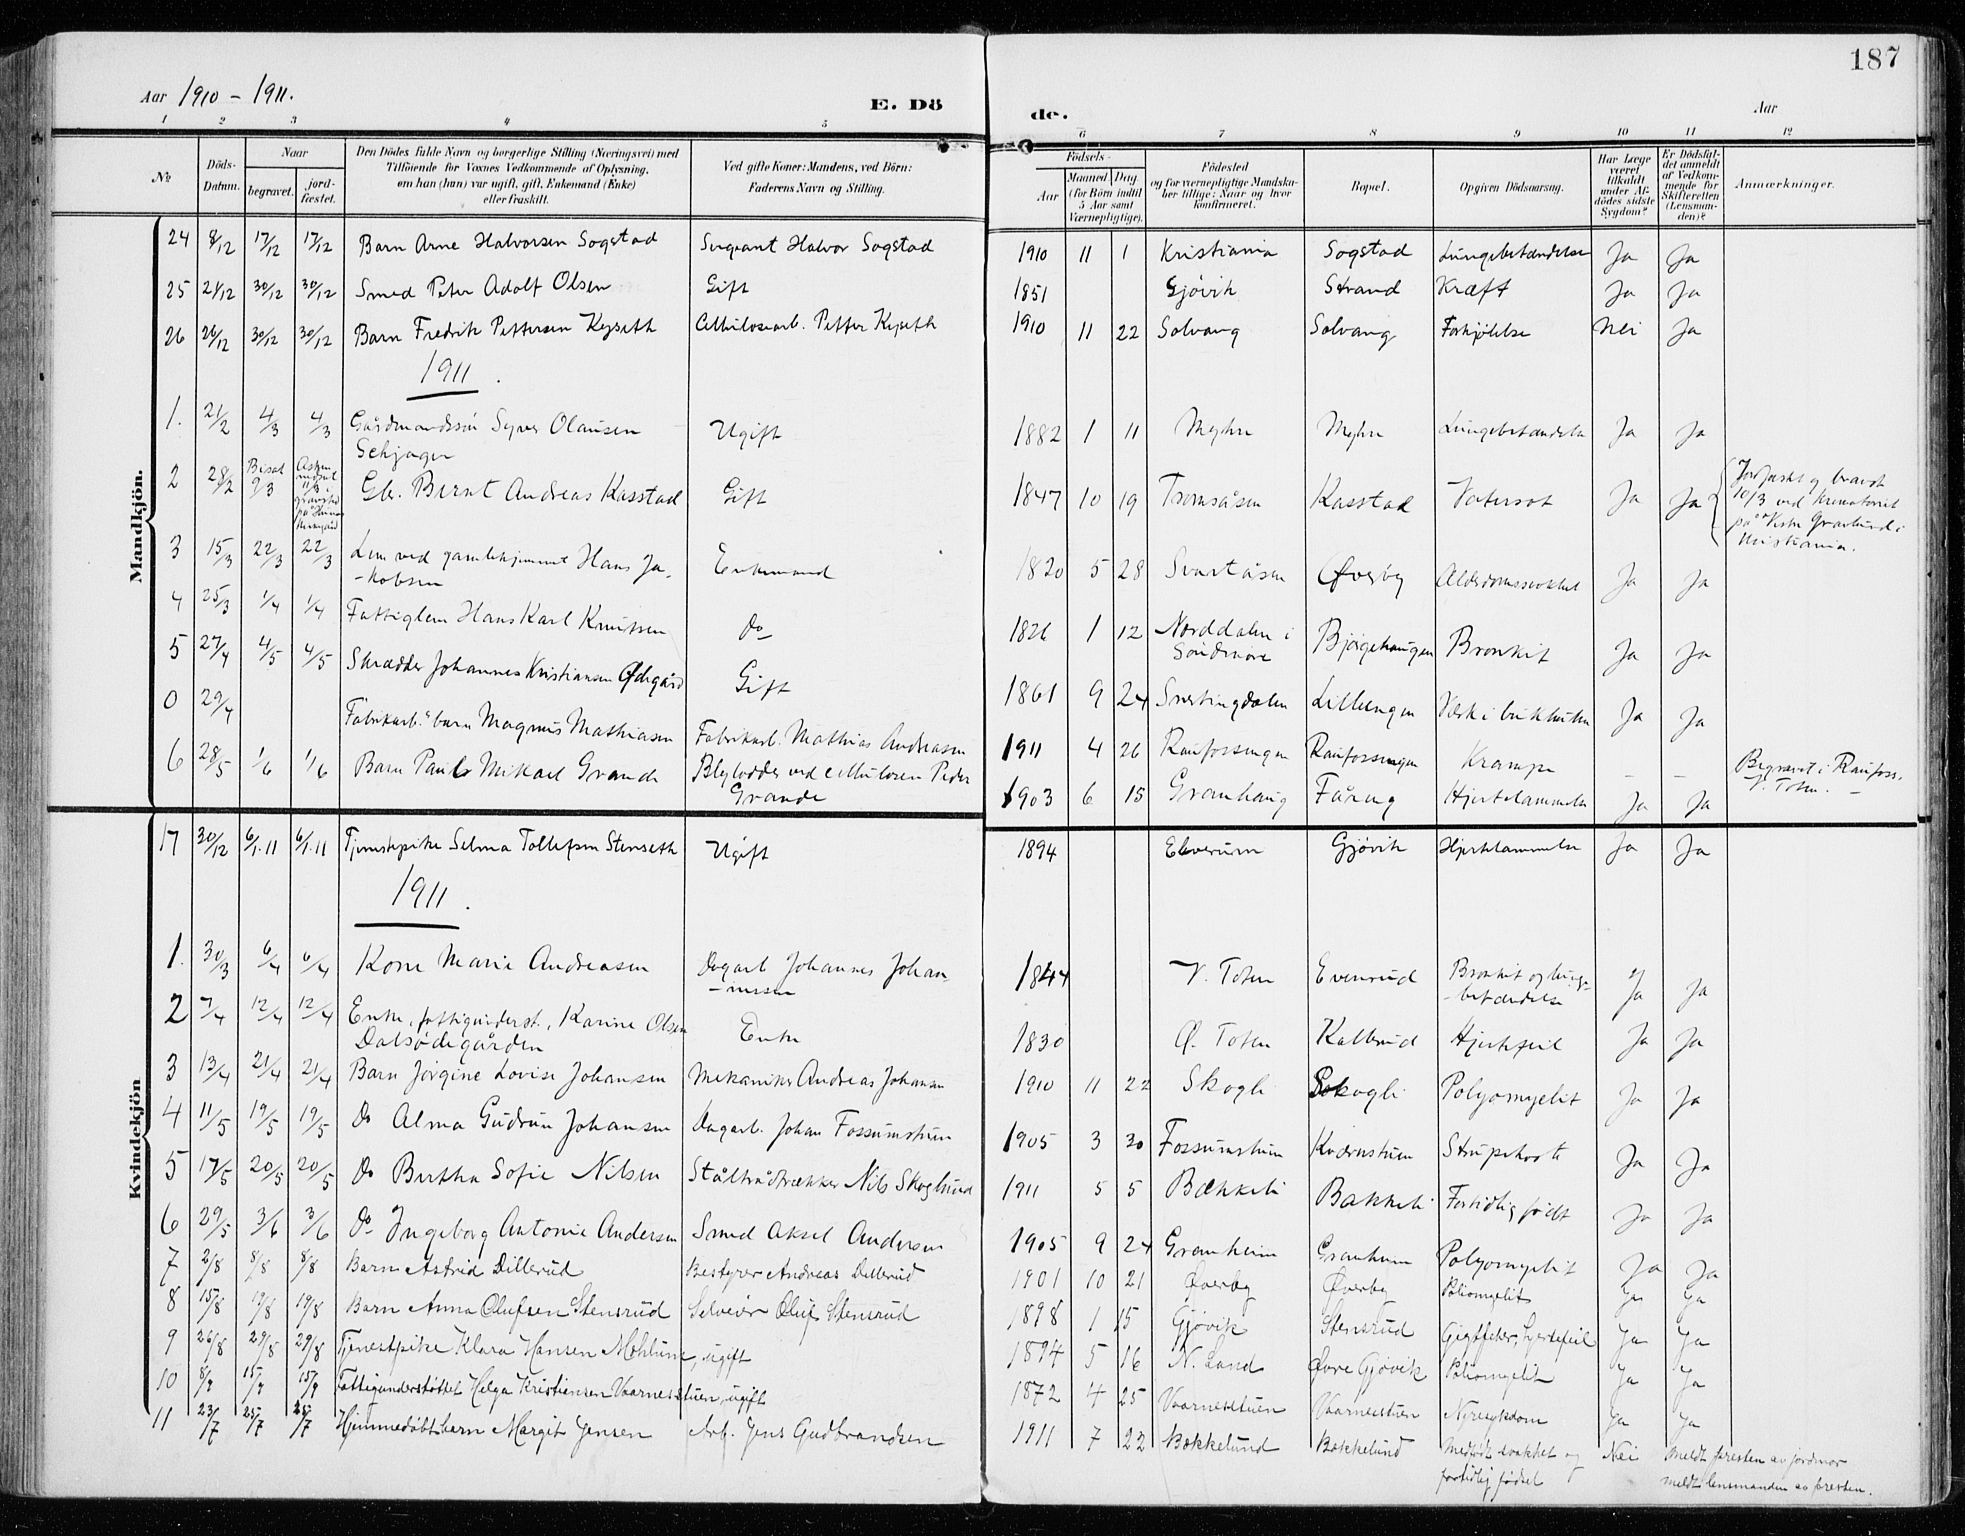 187
Aar 1910 - 1911.
E. Dö
de.
Aar
1 2 3 4 5 6 7 8 9 10 11 12
No.
Döds-Datum.
Naar
begravet.
jord-fæstet.
Den Dödes fulde Navn og borgerlige Stilling (Næringsvei) med
Tilföiende for Voxnes Vedkommende af Oplysning,
om han (hun) var ugift, gift, Enkemand (Enke)
eller fraskilt.
Ved gifte Koner: Mandens, ved Börn:
Faderens Navn og Stilling.
Födsels-
Aar
Maaned. Dag.
(for Börn indtil
5 Aar samt
Værnepligtige).
Födested
og for værnepligtige Mandskaber tillige: Naar og hvor
konfirmeret.
Bopæl.
Opgiven Dödsaarsag.
Har Læge været tilkaldt under Afdödes sidste Sygdom?
Er Dödsfaldet anmeldt af Vedkommende for Skifteretten (Lensmanden)?
Anmærkninger.
Mandkjön.
24 8/12 17/12 17/12 Barn Arne Halvorsen Sogstad Sergeant Halvor Sogstad 1910 11 1 Kristiania Sogstad Lungebetændelse Ja Ja
25 21/12 30/12 30/12 Smed Peter Adolf Olsen Gift 1851 Gjövik Strand Kræft Ja Ja
26 26/12 30/12 30/12 Barn Fredrik Pettersen Kyseth Cellulosearb. Petter Kyseth 1910 11 22 Solvang Solvang Forkjölelse Nei Ja
1911.
1. 21/2 4/3 4/3 Gårdmandssön Syver Olausen Ugift 1882 1 11 Myhre Myhre Lungebetændelse Ja Ja
2 28/2 Bisat 9/3 Gbr. Bernt Andreas Kasstad Gift 1847 10 19 Kasstad Vatersot Ja Ja
Jordfæstet og brændt
10/3 ved krematoriet
på Vestre Gravlund i
Kristiania.
3 15/3 22/3 22/3 Lem ved gamlehjemmet Hans Ja-
-kobsen Enkemand 1820 5 28 Svartåsen Øverby Alderdomssvakhet Ja Ja
4 25/3 1/4 1/4 Fattiglem Hans Karl Knutsen Do 1826 1 12 Norddalen i
Söndmöre Bjørgehaugen Bronkit Ja Ja
5 27/4 4/5 4/5 Skrædder Johannes Kristiansen Ødegård Gift 1861 9 24 Snertingdalen Lilleengen Væsk i bukhulen Ja Ja
0 29/4 Fabrikarb.s barn Magnus Mathiasen Fabrikarb. Mathias Andreasen 1911 4 26 Raufossengen Raufossengen Krampe - - Begravet i Raufoss,
V. Toten. -
6 28/5 1/6 1/6 Barn Paul Mikael Grande Blylodder ved cellulosen Peder
Grande 1903 6 15 Granhaug Fåraug Hjertelammelse Ja Ja
Kvindekjön
17 30/12 6/1.11 6/1.11 Tjenestepike Selma Tollefsen Stenseth Ugift 1894 Elverum Gjövik Hjertelammelse Ja Ja
1911.
1. 30/3 6/4 6/4 Kone Marie Andreasen Dagarb Johannes Johan-
-nessen 1844 V. Toten Evenrud Bronkit og lunge-
-betændelse Ja Ja
2 7/4 12/4 12/4 Enke, fattigunderst., Karine Olsen
Dalsödegården Enke 1830 Ø. Toten Kallerud Hjertefeil Ja Ja
3 13/4 21/4 21/4 Barn Jörgine Lovise Johansen Mekaniker Andreas Johansen 1910 11 22 Skogli Skogli Polyomyelit Ja Ja
4 11/5 19/5 19/5 Do Alma Gudrun Johansen Dagarb. Johan Fossumstuen 1905 3 30 Fossumstuen Kværnstuen Strupehoste Ja Ja
5 17/5 20/5 20/5 Do Bertha Sofie Nilsen Ståltrådtrækker Nils Skoglund 1911 5 5 Bækkeli Bakkeli Fortidlig född Ja Ja
6 29/5 3/6 3/6 Do Ingeborg Antonie Andersen Smed Aksel Andersen 1905 9 24 Granheim Granheim Polyomyelit Ja Ja
7 2/8 8/8 8/8 Barn Astrid Dillerud Bestyrer Andreas Dillerud 1901 10 21 Øverby Øverby Poliomyelit Ja Ja
8 15/8 19/8 19/8 Barn Anna Olufsen Stensrud Selveier Oluf Stensrud 1898 1 15 Gjövik Stensrud Gigtfeber, hjertefeil Ja Ja
9 26/8 29/8 29/8 Tjenestpike Klara Hansen Mohlune, ugift 1894 5 16 N. Land Øvre Gjøvik Poliomyelit Ja Ja
10 8/9 15/9 15/9 Fattigunderstöttet Helga Kristiansen Vaarnesstuen, ugift 1872 4 25 Vaarnesstuen Vaarnesstuen Nyresykdom Ja Ja
11 23/7 25/7 25/7 Hjemmedöbt barn Margit Jensen Arb. Jens Gudbrandsen 1911 7 22 Bækkelund Bækkelund Medfödt svakhet og
fortidlig födsel Nei Meldt presten av jordmor
meldt lensmanden av presten.